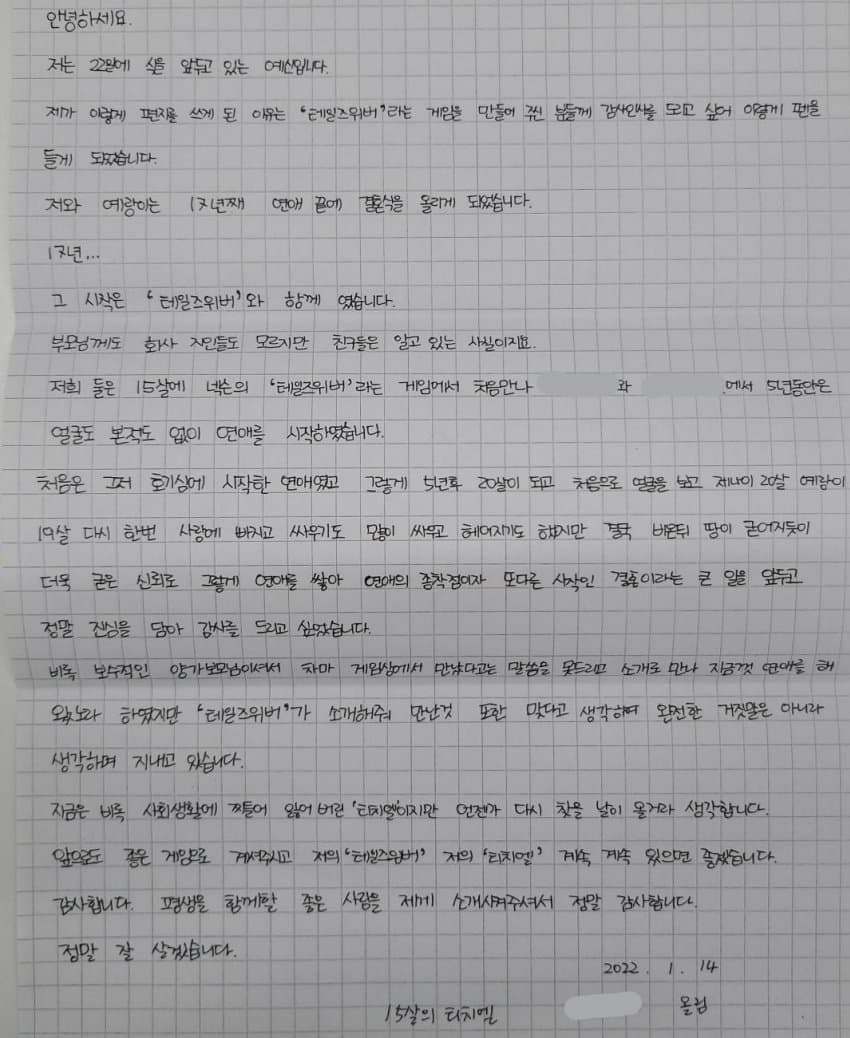 안녕하세요.
저는 22일에 식을 앞두고 있는 예신입니다.
제가 이렇게 편지를 쓰게 된 이유는 '테일즈위버'라는 게임을 만들어 주신 님들께 감사인사를 드리고 싶어 이렇게 펜을
들게 되었습니다.
저와 예랑이는 17년째 연애 끝에 결혼식을 올리게 되었습니다.
17년...
그 시작은 '테일즈위버'와 함께 였습니다.
부모님께도 회사 지인들도 모르지만 친구들은 알고 있는 사실이지요.
저희 둘은 15살에 넥슨의 '테일즈위버'라는 게임에서 처음만나 과 .에서 5년동안은
얼굴도 본적도 없이 연애를 시작하였습니다.
처음은 그저 호기심에 시작한 연애였고 그렇게 5년후 20살이 되고 처음으로 얼굴을 보고 제나이 20살 예랑이
19살 다시 한번 사랑에 빠지고 싸우기도 많이 싸우고 헤어지기도 했지만 결국 비온뒤 땅이 굳어지듯이
더욱 굳은 신뢰로 그렇게 연애를 쌓아 연애의 종착점이자 또다른 시작인 결혼이라는 큰 일을 앞두고
정말 진심을 담아 감사를 드리고 싶었습니다.
비록 보수적인 양가부모님이셔서 차마 게임상에서 만났다고는 말씀을 못드리고 소개로 만나 지금껏 연애를 해
왔노라 하였지만 '테일즈위버'가 소개해줘 만난것 또한 맞다고 생각하며 완전한 거짓말은 아니라
생각하며 지내고 있습니다.
지금은 비록 사회생활에 찌들어 잃어버린 '티치엘'이지만 언젠가 다시 찾을 날이 올거라 생각합니다.
앞으로도 좋은 게임으로 계셔주시고 저의 '테일즈위버' 저의 '티치엘' 계속 계속 있으면 좋겠습니다.
감사합니다. 평생을 함께할 좋은 사람을 제게 소개시켜주셔서 정말 감사합니다.
정말 잘 살겠습니다.
2022. 1. 14
15살의 티치엘 올림